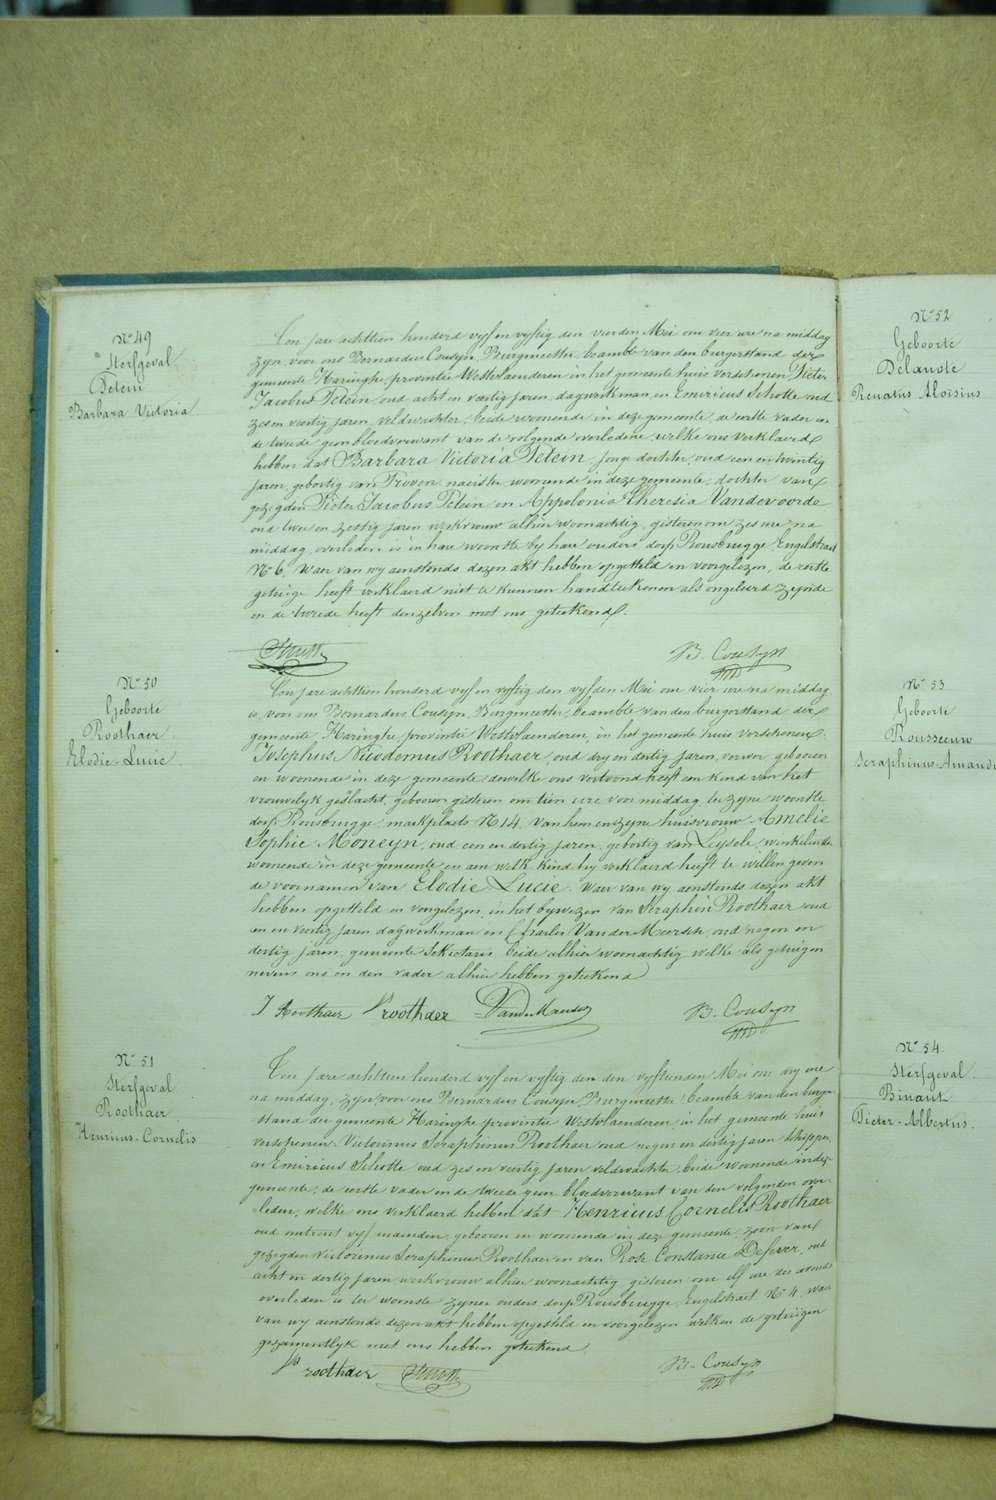 N° 49
Sterfgeval
Petein
Barbara Victoria
Ten jare achttien honderd vyf en vyftig den vierden Mei om vier ure na middag
zyn voor ons Bernardus Cousyn, Burgmeester, beambte van den burgerstand der
gemeente Haringhe, provintie Westvlaenderen in het gemeente huis verschenen Pieter
Jacobus Petein oud acht en veertig jaren, dagwerkman, en Emiricus Schotte oud
zes en veertig jaren, veldwachter, beide wonende in deze gemeente, de eerste vader en
de tweede geen bloedverwant van de volgende overledene, welke ons verklaerd
hebben dat Barbara Victoria Petein, jonge dochter, oud een en twintig
jaren, geboortig van Proven, naeister, wonende in deze gemeente, dochter van
gezegden Pieter Jacobus Petein en Appolonia Theresia Vandevoorde
oud twee en zestig jaren, werkvrouw alhier woonachtig, gisteren om zes ure na
middag overleden is in hare woonste by hare ouders dorp Rousbrugge, Engelstraet
N° 6. Waer van wy aenstonds dezen akt hebben opgesteld en voorgelezen, de eerste
getuige heeft verklaerd niet te kunnen handteekenen als ongeleerd zynde
en de tweede heeft denzelven met ons geteekend.
B. Cousyn
N° 50
Geboorte
Roothaer
Elodie-Lucie.
Ten jare achttien honderd vyf en vyftig den vyfden Mei om vier ure na middag
is, voor ons Bernardus Cousyn, Burgmeester, beambte van den burgerstand der
gemeente Haringhe, provintie Westvlaenderen, in het gemeente huis verschenen
Josephus Nicodemus Roothaer, oud dry en dertig jaren, verwer, geboren
en wonende in deze gemeente, dewelke ons vertoond heeft een kind van het
vrouwelyk geslacht, geboren gisteren om tien ure voor middag, ter zyne woonste
dorp Rousbrugge, markplaets N° 14, van hem en zyne huisvrouw Amelie
Sophie Moneyn, oud een en dertig jaren, geboortig van Leysele, winkelierster
wonende in deze gemeente en aen welk kind hy verklaerd heeft te willen geven
de voornamen van Elodie Lucie. Waer van wy aenstonds dezen akt
hebben opgesteld en voorgelezen, in het bywezen van Seraphin Roothaer oud
een en veertig jaren dagwerkman en Charles Van der Meersch, oud negen en
dertig jaren, gemeente Sekretaris beide alhier woonachtig welke als getuigen
nevens ons en den vader alhier hebben geteekend
J Roothaer roothaer B. Cousyn
N° 51
Sterfgeval
Roothaer
Henricus-Cornelis
Ten jare achttien honderd vyf en vyftig den den vyftienden Mei om dry ure
na middag, zyn voor ons Bernardus Cousyn Burgmeester, beambte van den burger
stand der gemeente Haringhe provintie Westvlaenderen in het gemeente huis
verschenen Victorinus Seraphinus Roothaer oud negen en dertig jaren schipper
en Emiricus Schotte oud zes en veertig jaren veldwachter, beide wonende in deze
gemeente, de eerste vader en de tweede geen bloedverwant van den volgenden over-
leden, welke ons verklaerd hebben dat Henricus Cornelis Roothaer
oud omtrent vyf maenden, geboren en wonende in deze gemeente, zoon van
gezegden Victorinus Seraphinus Roothaer en van Rosa Constance Defever, oud
acht en dertig jaren werkvrouw alhier woonachtig, gisteren om elf ure des avonds
overleden is ter woonste zyner ouders dorp Rousbrugge, Engelstraet N° 4, waer
van wy aenstonds dezen akt hebben opgesteld en voorgelezen welken de getuigen
gezamentlyk met ons hebben geteekend
roothaer B. Cousyn
N° 52
Geboorte
Delanote
Renatus Aloïsius
N° 53
Geboorte
Rousseeuw
Seraphinus-Amand
N° 54.
Sterfgeval
Binaut
Pieter-Albertus.